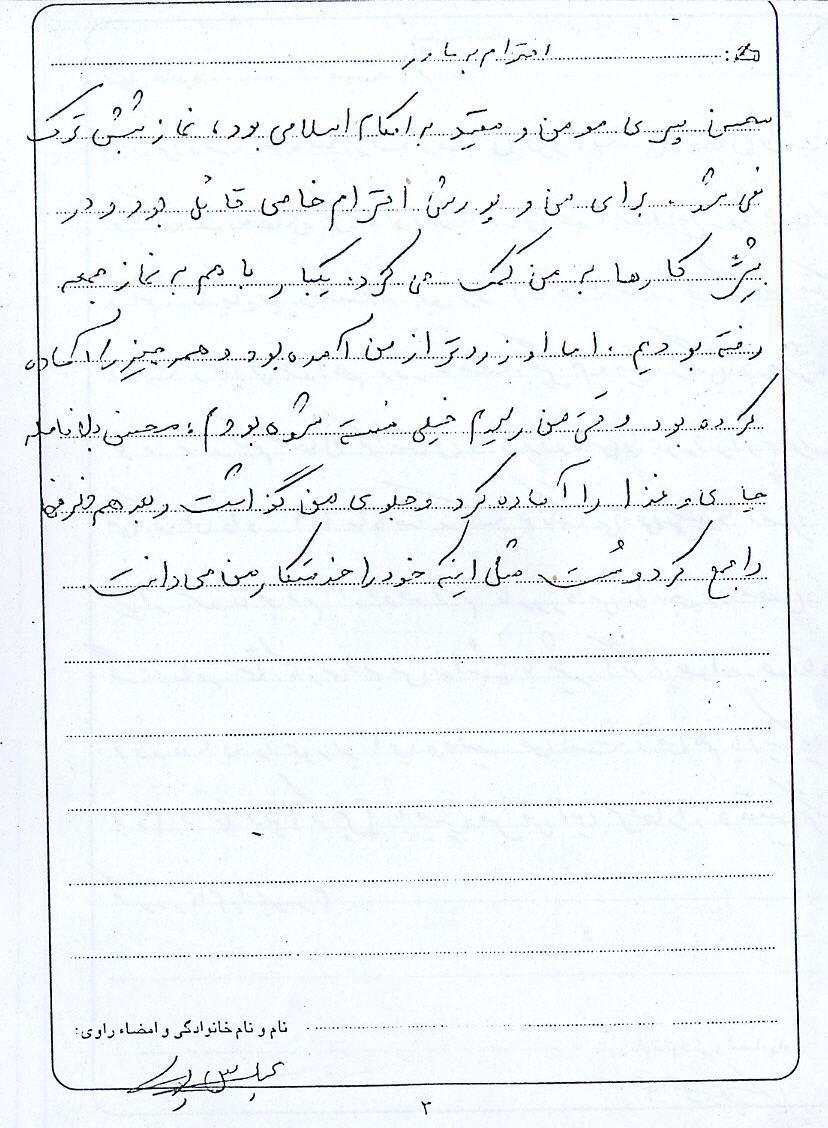 احترام به مادر
محسن پسری مومن و مقید به احکام اسلامی بود، نماز شبش ترک
نمی شد. برای من و پدرش احترام خاصی قائل بود و در
بیشتر کارها به من کمک می کرد. یکبار با هم به نماز جمعه
رفته بودیم. اما او زودتر از من آمده بود و همه چیز را آماده
کرده بود وقتی من رسیدم خیلی خسته شده بودم، محسن بلافاصله
چای و غذا را آماده کرد و جلوی من گذاشت و بعد هم ظرفها
را جمع کرد و شست مثل اینکه خود را خدمتکار من می دانست.
نام و نام خانوادگی و امضاء راوی:
۲